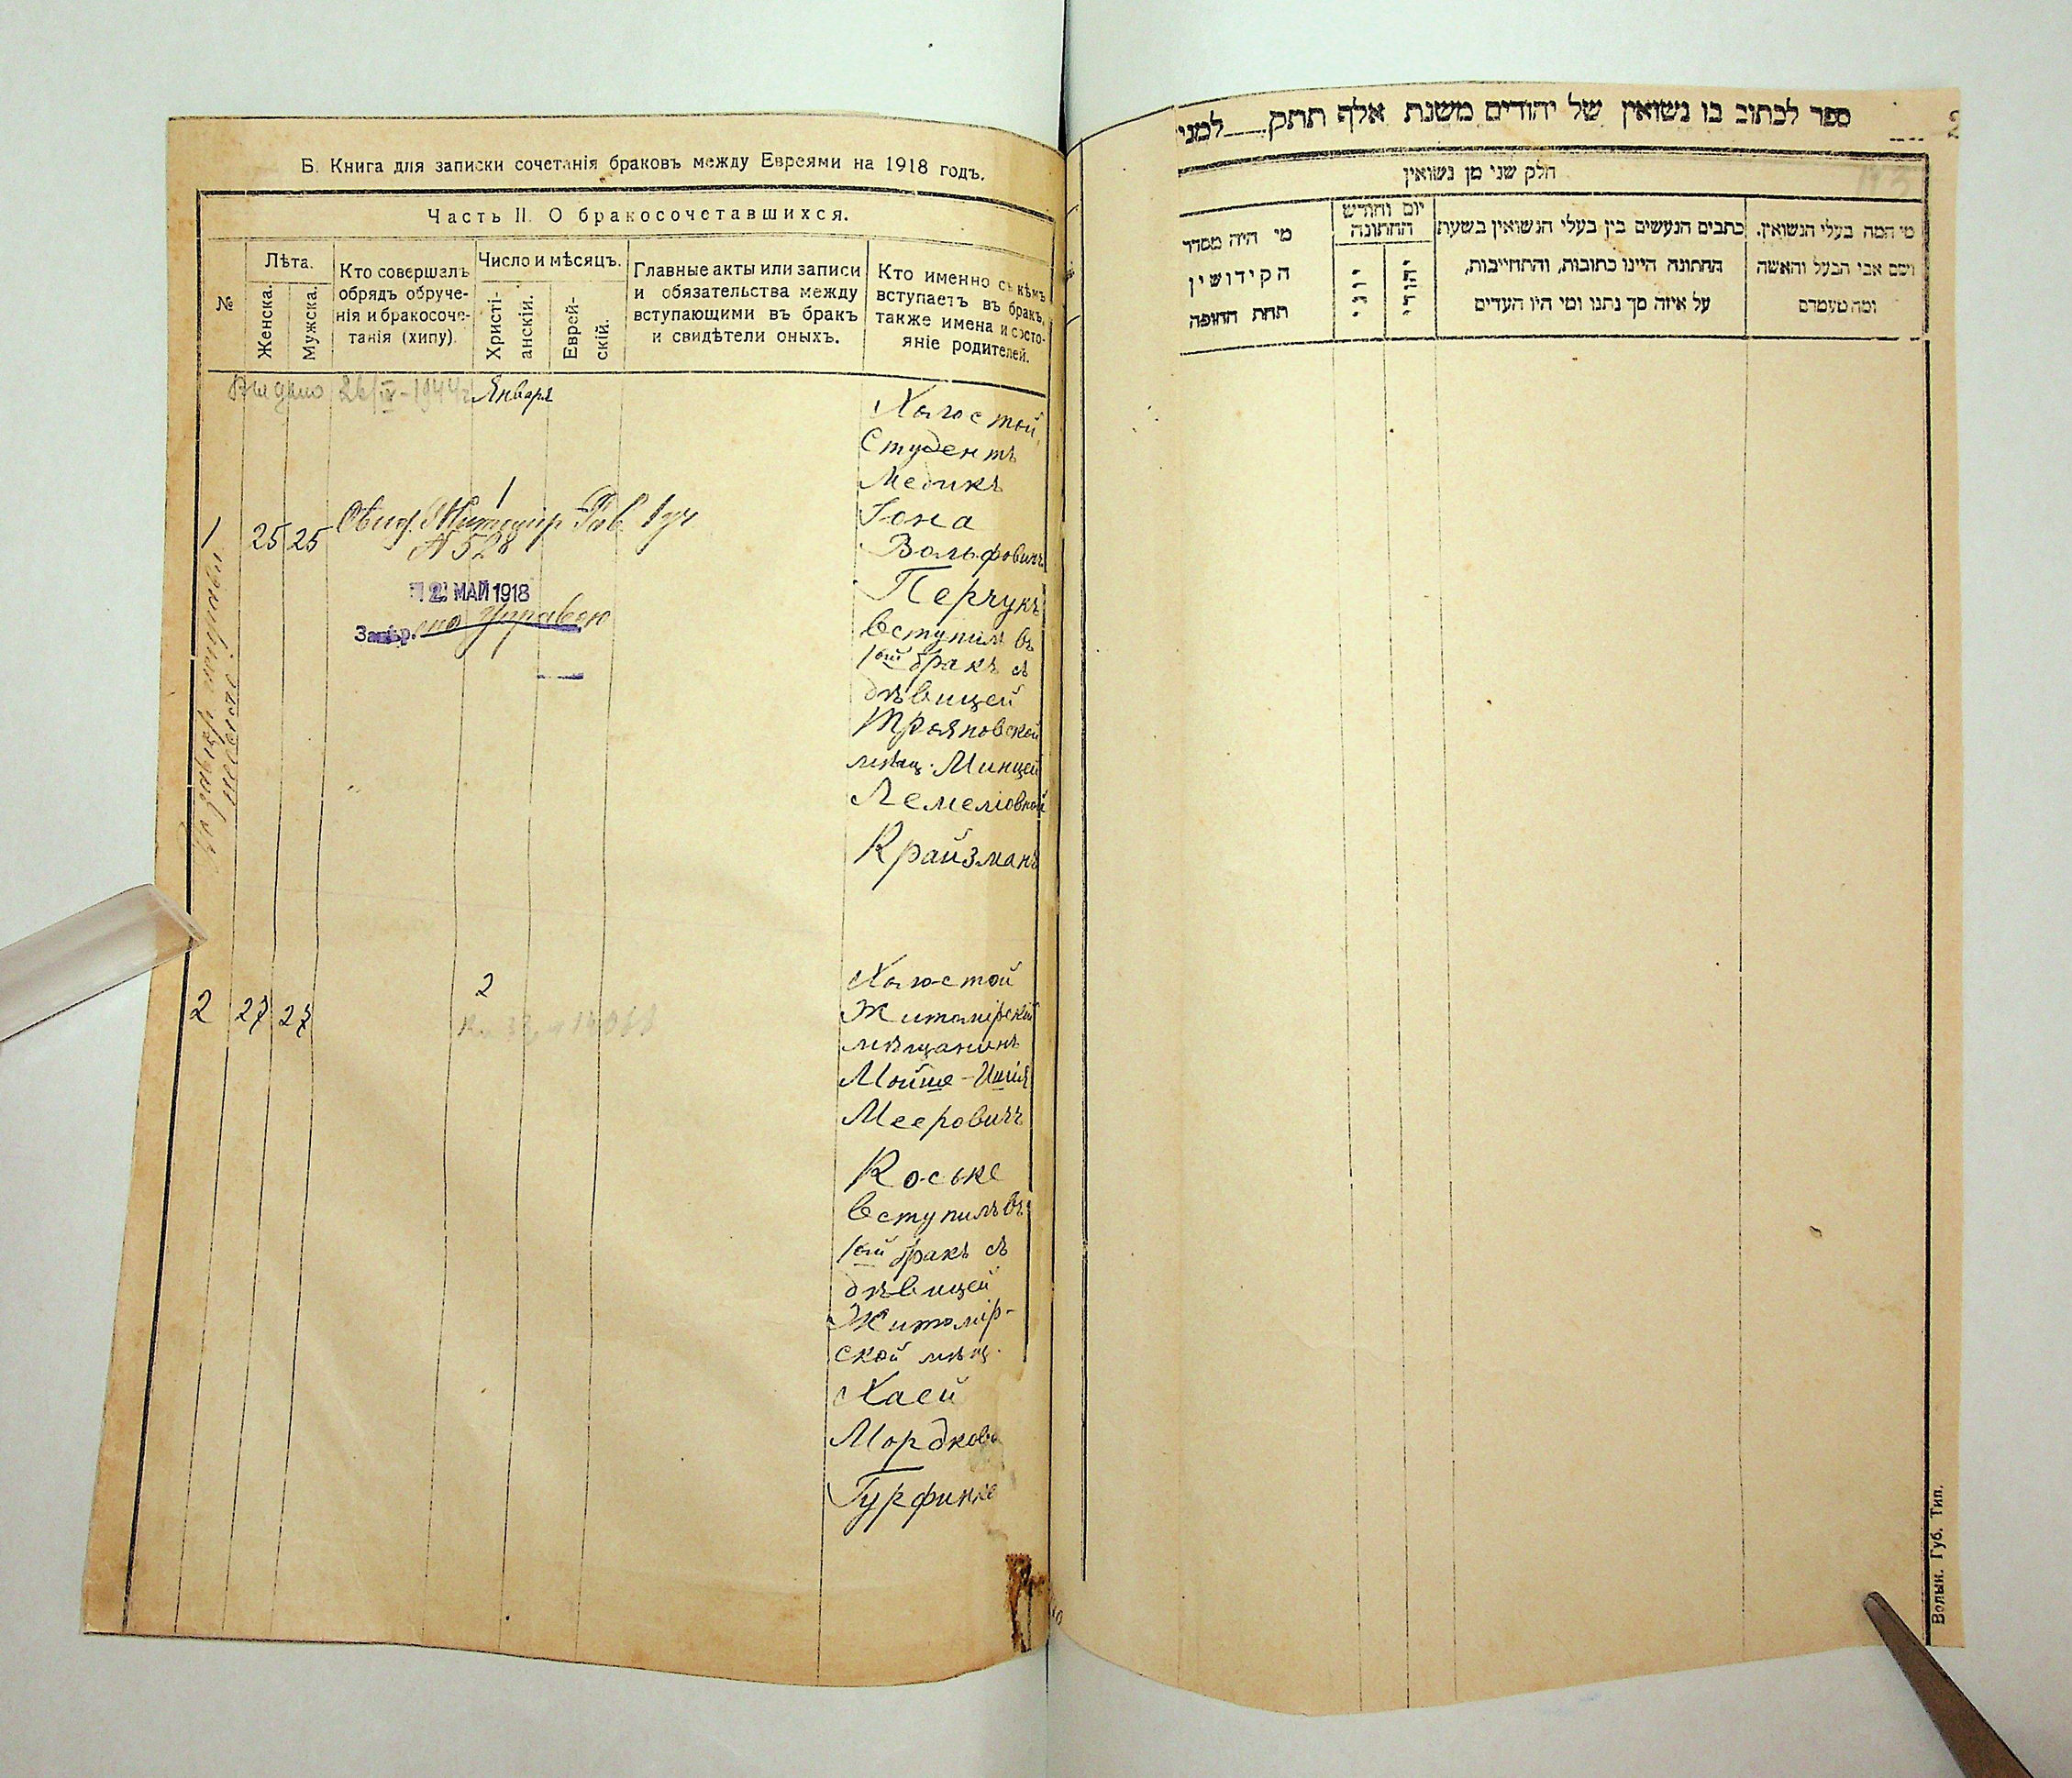 Б. Книга для записки сочетанія браковъ между Евреями на 1918 годъ.
Часть II. О бракосочетавшихся.
№
Лѣта.
Женска.
Мужска.
Кто совершалъ
обрядъ обруче-
нія и бракосоче-
танія (хипу).
Число и мѣсяцъ.
Христі-
анскій.
Еврей-
скій.
Главные акты или записи
и обязательства между
вступающими въ бракъ
и свидѣтели оныхъ.
Кто именно съ кѣмъ
вступаетъ въ бракъ,
также имена и состо-
яніе родителей.
Выдано 26/IV-1944г.
Января
1
1 25 25
№ 528
2 МАЙ 1918
Управою
Холостой
Студентъ
Медикъ
Іона
Вольфовичъ
Перчукъ
вступилъ въ
1ый бракъ съ
дѣвицей
Трояновской
мѣщ. Минцей
Лемеліовной
Крайзманъ
2
2 27 27
Холостой
Житомірскій
мѣщанинъ
Мойше-Ишія
Мееровичъ
Коське
вступилъ въ
1ый бракъ съ
дѣвицей
Житомір-
ской мѣщ.
Хаей
Мордков
Гурфинке
ספר לכתוב בו נשואין של יהודים משנת אלף תתק למני
חלק שני מן נשואין
מי היה מסדר
הקידושין
תחת החופה
יום וחודש
החתונה
יוני
יהודי
כתבים הנעשים בין בעלי הנשואין בשעת
החתונה היינו כתובות, והתחייבות,
על איזה סך נתנו ומי היו העדים
מי המה בעלי הנשואין.
ושם אבי הבעל והאשה
ומה מעמדם
Волын. Губ. Тип.